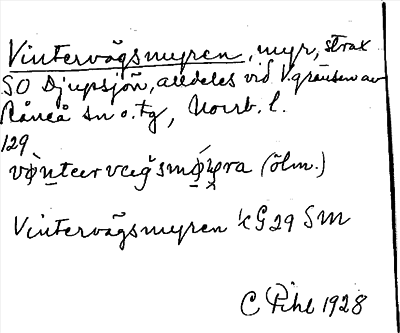 Vintervägsmyren, myr, strax
SO Djupsjön, alldeles vid V. gränsen av
Råneå sn o. tg, Norrb. l.
129
(ölm.)
Vintervägsmyren ½ G 29 SM
C Pihl 1928